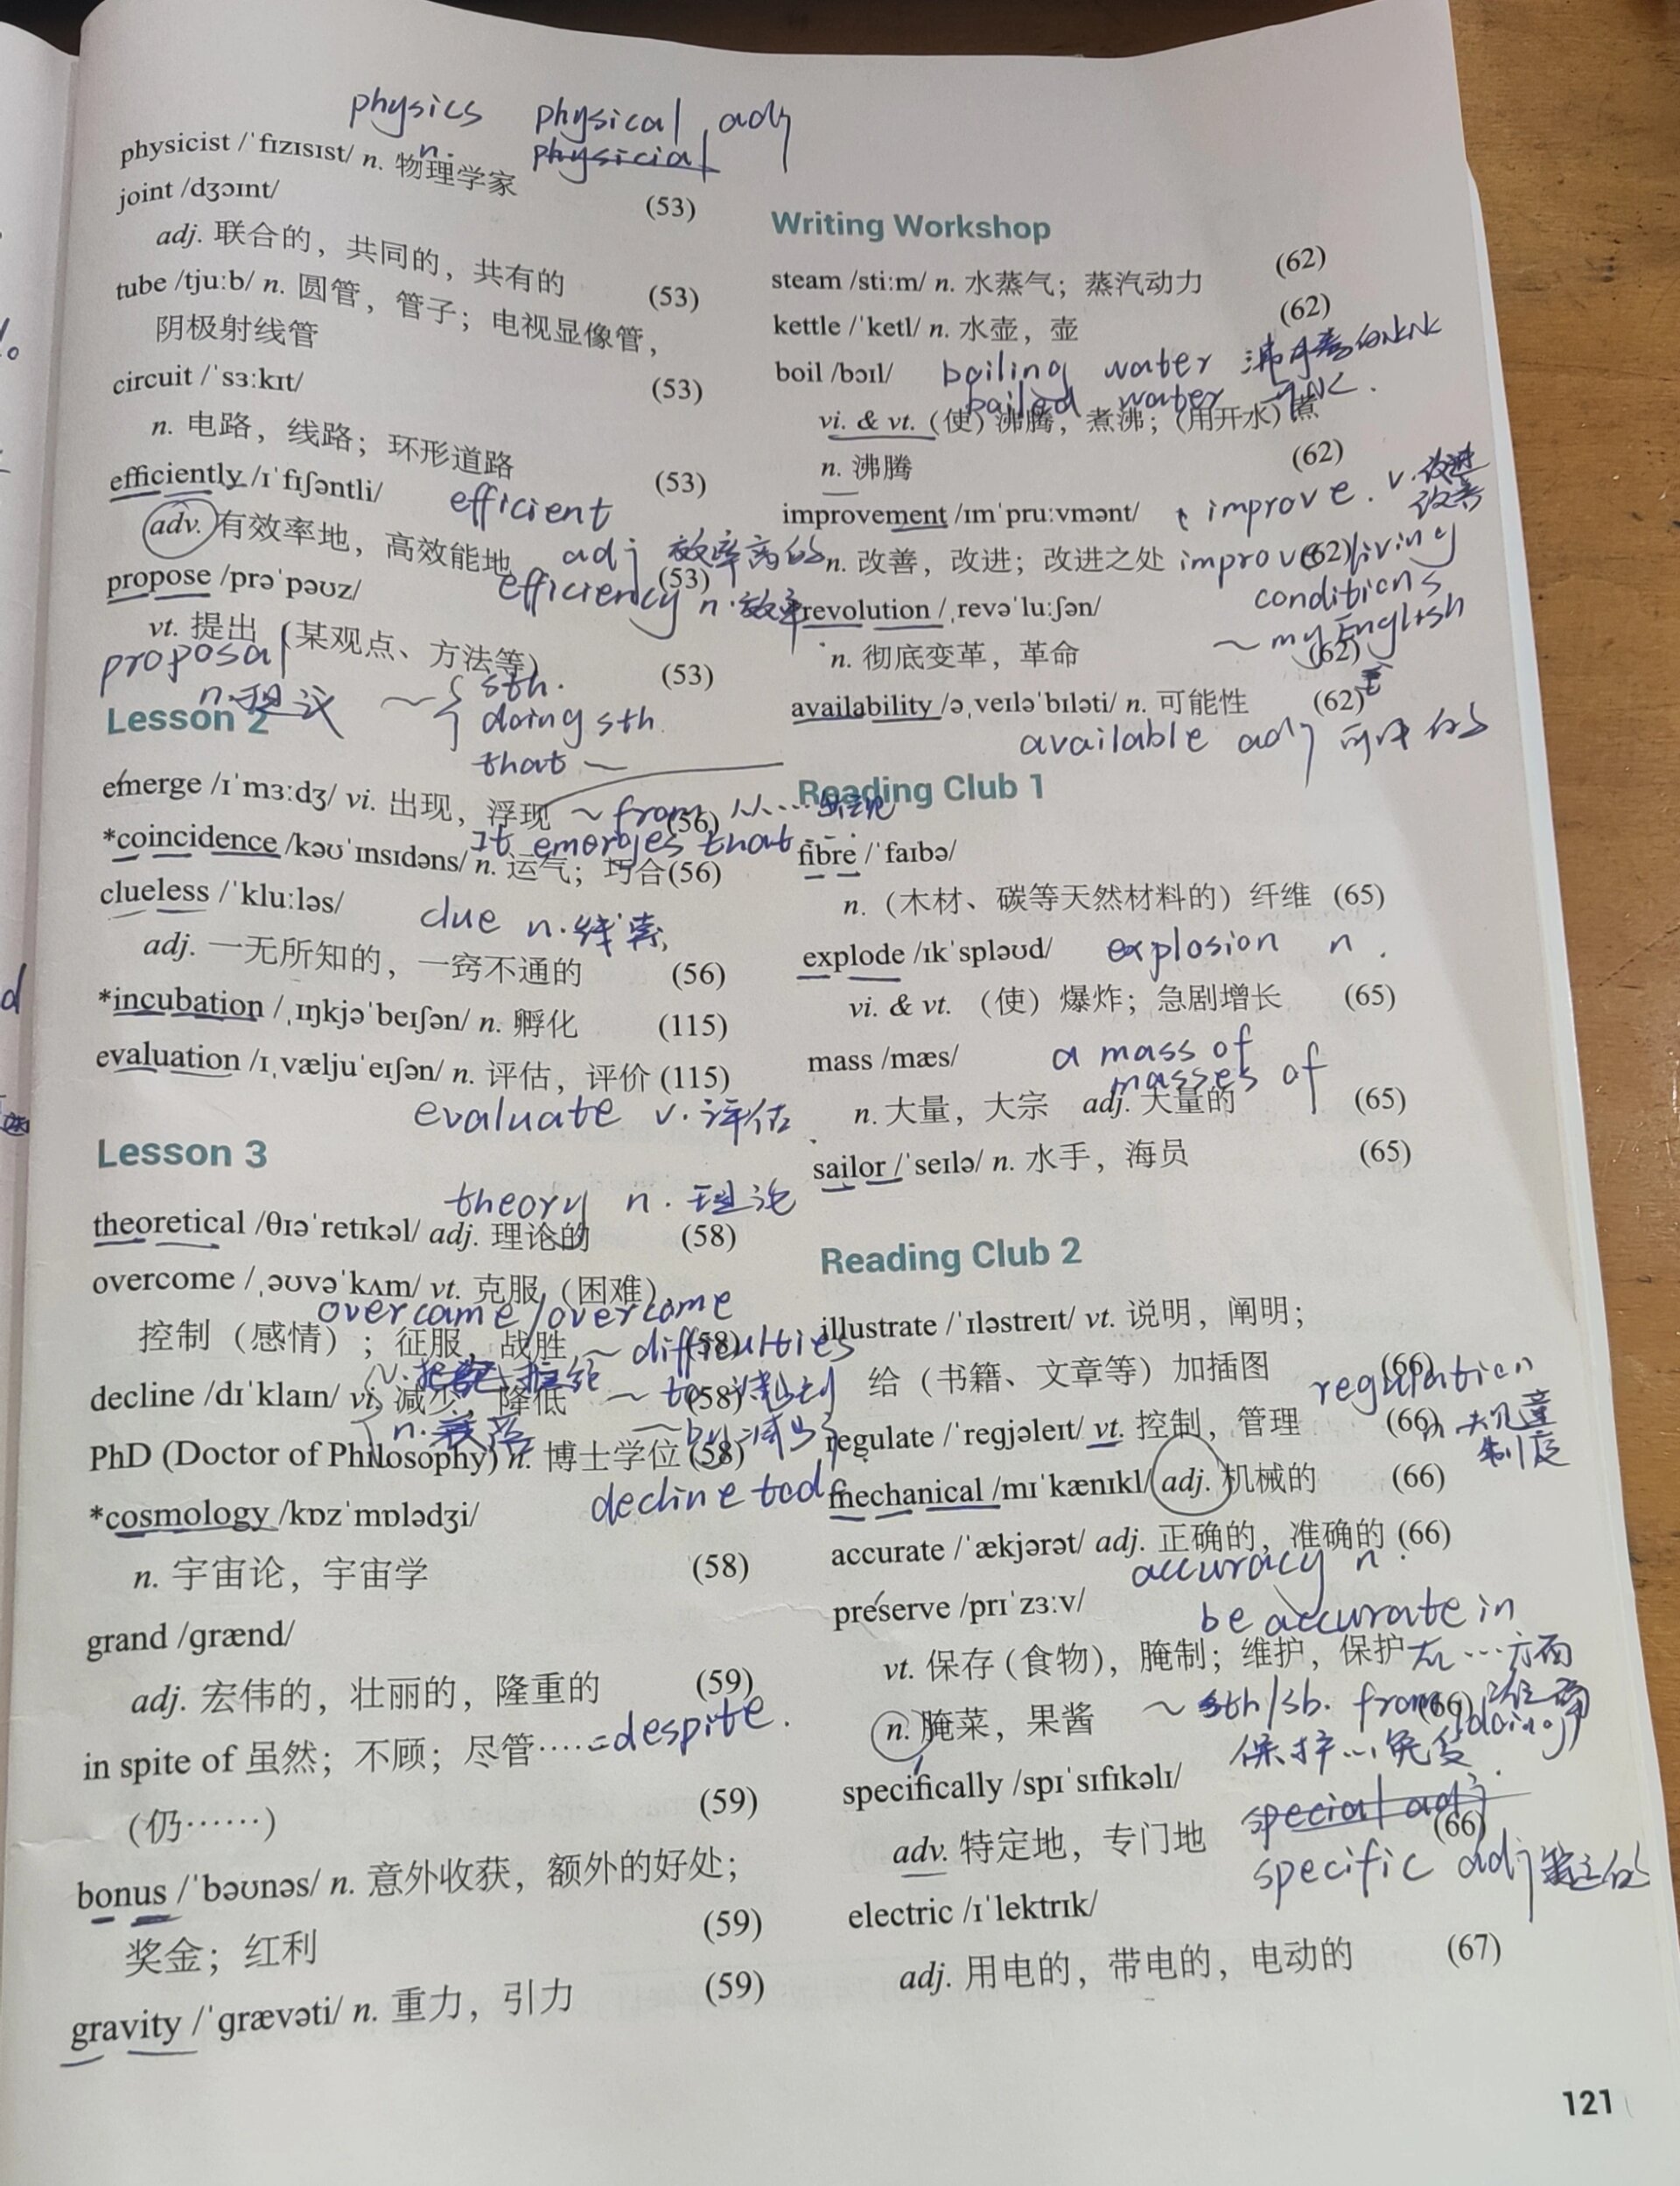 physics physical adj
n. physicial
physicist /ˈfɪzɪsɪst/ n. 物理学家 (53)
joint /dʒɔɪnt/
adj. 联合的，共同的，共有的 (53)
tube /tjuːb/ n. 圆管，管子；电视显像管，
阴极射线管 (53)
circuit /ˈsɜːkɪt/
n. 电路，线路；环形道路 (53)
efficiently /ɪˈfɪʃəntli/ efficient
adv. 有效率地，高效能地 (53)
adj 效率高的
efficiency n. 效率
propose /prəˈpəʊz/
vt. 提出（某观点、方法等） (53)
proposal
n. 提议 ~ { sth.
doing sth.
that ~
Lesson 2
emerge /ɪˈmɜːdʒ/ vi. 出现，浮现 (56)
~ from 从…出现
It emerges that
*coincidence /kəʊˈɪnsɪdəns/ n. 运气；巧合 (56)
clueless /ˈkluːləs/ clue n. 线索
adj. 一无所知的，一窍不通的 (56)
*incubation /ˌɪŋkjəˈbeɪʃən/ n. 孵化 (115)
evaluation /ɪˌvæljuˈeɪʃən/ n. 评估，评价 (115)
evaluate v. 评估
Lesson 3
theory n. 理论
theoretical /θɪəˈretɪkəl/ adj. 理论的 (58)
overcome /ˌəʊvəˈkʌm/ vt. 克服（困难），
overcame/overcome
控制（感情）；征服，战胜 (58)
~ difficulties
decline /dɪˈklaɪn/ vi. 减少，降低 (58)
v. 拒绝
~ to
n. 衰落 ~ by 减少了
PhD (Doctor of Philosophy) n. 博士学位 (58)
decline to do
*cosmology /kɒzˈmɒlədʒi/
n. 宇宙论，宇宙学 (58)
grand /ɡrænd/
adj. 宏伟的，壮丽的，隆重的 (59)
in spite of 虽然；不顾；尽管…… =despite.
（仍……） (59)
bonus /ˈbəʊnəs/ n. 意外收获，额外的好处；
奖金；红利 (59)
gravity /ˈɡrævəti/ n. 重力，引力 (59)
Writing Workshop
steam /stiːm/ n. 水蒸气；蒸汽动力 (62)
kettle /ˈketl/ n. 水壶，壶 (62)
boil /bɔɪl/ boiling water
boiled water
vi. & vt.（使）沸腾，煮沸；（用开水）煮
n. 沸腾 (62)
improvement /ɪmˈpruːvmənt/ improve. v. 改进
改善
n. 改善，改进；改进之处 (62)
improve living
conditions
revolution /ˌrevəˈluːʃən/
~ my English
n. 彻底变革，革命 (62)
availability /əˌveɪləˈbɪləti/ n. 可能性 (62)
available adj 可用的
Reading Club 1
fibre /ˈfaɪbə/
n.（木材、碳等天然材料的）纤维 (65)
explode /ɪkˈspləʊd/ explosion n.
vi. & vt.（使）爆炸；急剧增长 (65)
mass /mæs/ a mass of
masses of
n. 大量，大宗 adj. 大量的 (65)
sailor /ˈseɪlə/ n. 水手，海员 (65)
Reading Club 2
illustrate /ˈɪləstreɪt/ vt. 说明，阐明；
给（书籍、文章等）加插图 (66)
regulation
regulate /ˈreɡjəleɪt/ vt. 控制，管理 (66)
n 规章
制度
mechanical /mɪˈkænɪkl/ adj. 机械的 (66)
accurate /ˈækjərət/ adj. 正确的，准确的 (66)
accuracy n.
preserve /prɪˈzɜːv/ be accurate in
vt. 保存（食物），腌制；维护，保护
在…方面
准确
n. 腌菜，果酱 (66)
~ sth/sb. from doing
保护…免受
specifically /spɪˈsɪfɪkəlɪ/
special adj.
adv. 特定地，专门地 (66)
specific adj
electric /ɪˈlektrɪk/
adj. 用电的，带电的，电动的 (67)
121